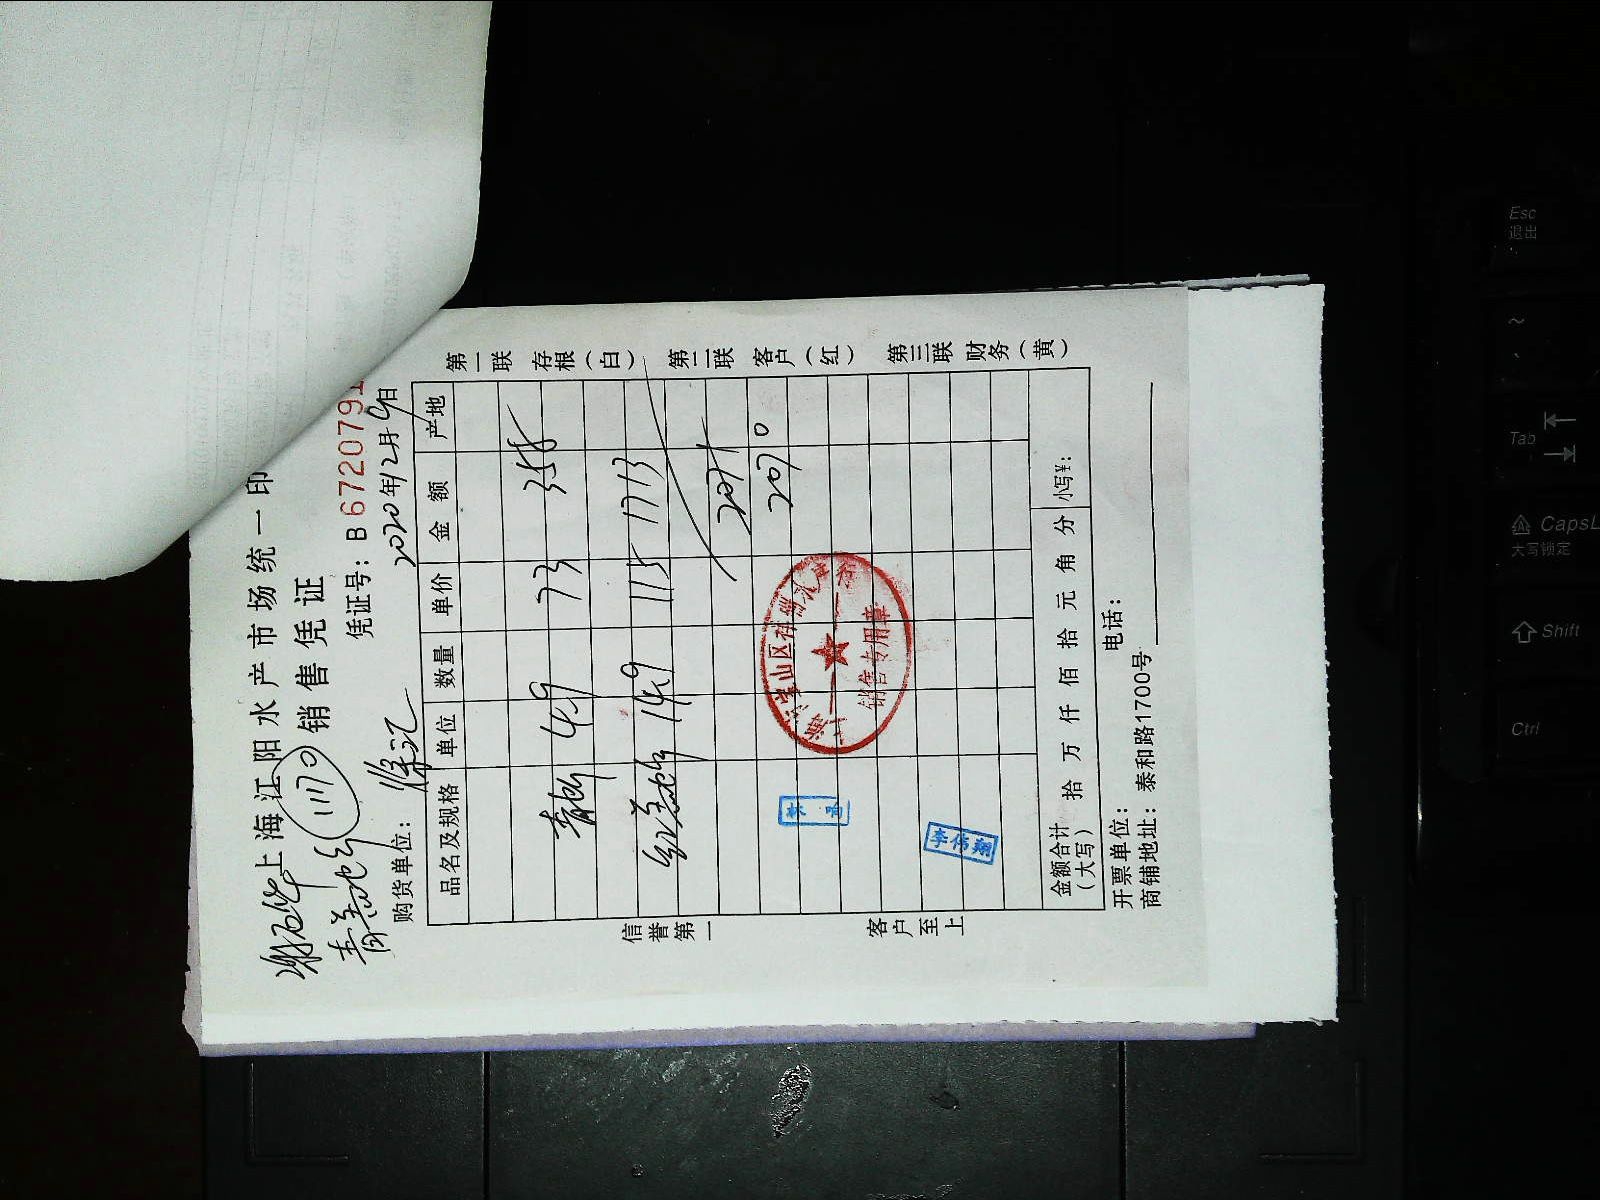 上海江阳水产市场统一印
销售凭证
1170
凭证号：B 6720791
购货单位：
2020年12月9日
品名及规格 单位 数量 单价 金额 产地
4.9 73 358
14.9 115 1713
2071
2070
信誉第一
客户至上
第一联 存根（白） 第二联 客户（红） 第三联 财务（黄）
销售专用章
李伟翔
金额合计（大写） 拾 万 仟 佰 拾 元 角 分 小写¥：
开票单位： 电话：
商铺地址：泰和路1700号
Esc
退出
~
Tab
CapsL
大写锁定
Shift
Ctrl